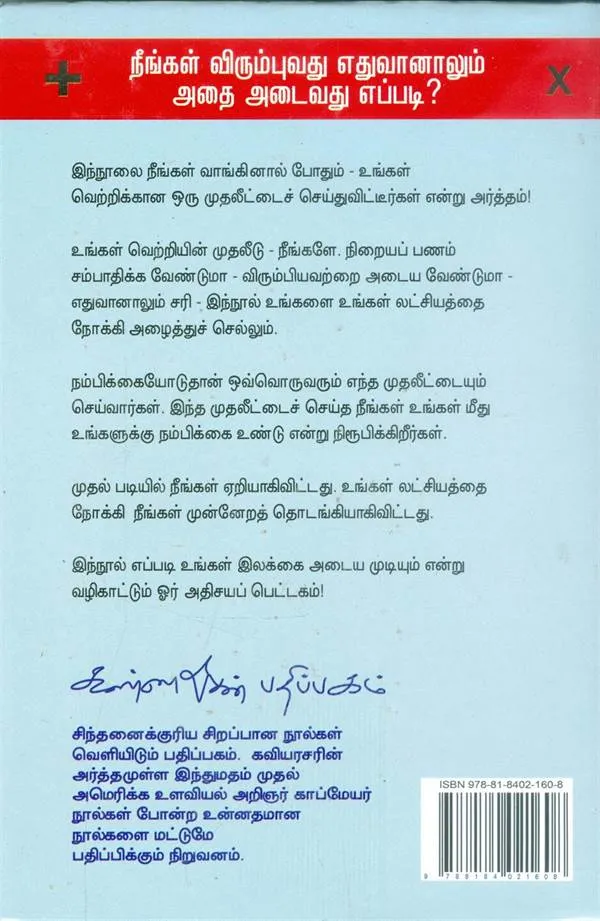 நீங்கள் விரும்புவது எதுவானாலும்
+ X
அதை அடைவது எப்படி?
இந்நூலை நீங்கள் வாங்கினால் போதும் - உங்கள்
வெற்றிக்கான ஒரு முதலீட்டைச் செய்துவிட்டீர்கள் என்று அர்த்தம்!
உங்கள் வெற்றியின் முதலீடு - நீங்களே. நிறையப் பணம்
சம்பாதிக்க வேண்டுமா - விரும்பியவற்றை அடைய வேண்டுமா -
எதுவானாலும் சரி - இந்நூல் உங்களை உங்கள் லட்சியத்தை
நோக்கி அழைத்துச் செல்லும்.
நம்பிக்கையோடுதான் ஒவ்வொருவரும் எந்த முதலீட்டையும்
செய்வார்கள். இந்த முதலீட்டைச் செய்த நீங்கள் உங்கள் மீது
உங்களுக்கு நம்பிக்கை உண்டு என்று நிரூபிக்கிறீர்கள்.
முதல் படியில் நீங்கள் ஏறியாகிவிட்டது. உங்கள் லட்சியத்தை
நோக்கி நீங்கள் முன்னேறத் தொடங்கியாகிவிட்டது.
இந்நூல் எப்படி உங்கள் இலக்கை அடைய முடியும் என்று
வழிகாட்டும் ஓர் அதிசயப் பெட்டகம்!
கண்ணதாசன் பதிப்பகம்
சிந்தனைக்குரிய சிறப்பான நூல்கள்
வெளியிடும் பதிப்பகம். கவியரசரின்
அர்த்தமுள்ள இந்துமதம் முதல்
அமெரிக்க உளவியல் அறிஞர் காப்மேயர்
நூல்கள் போன்ற உன்னதமான
நூல்களை மட்டுமே
பதிப்பிக்கும் நிறுவனம்.
ISBN 978-81-8402-160-8
9 788184 021608